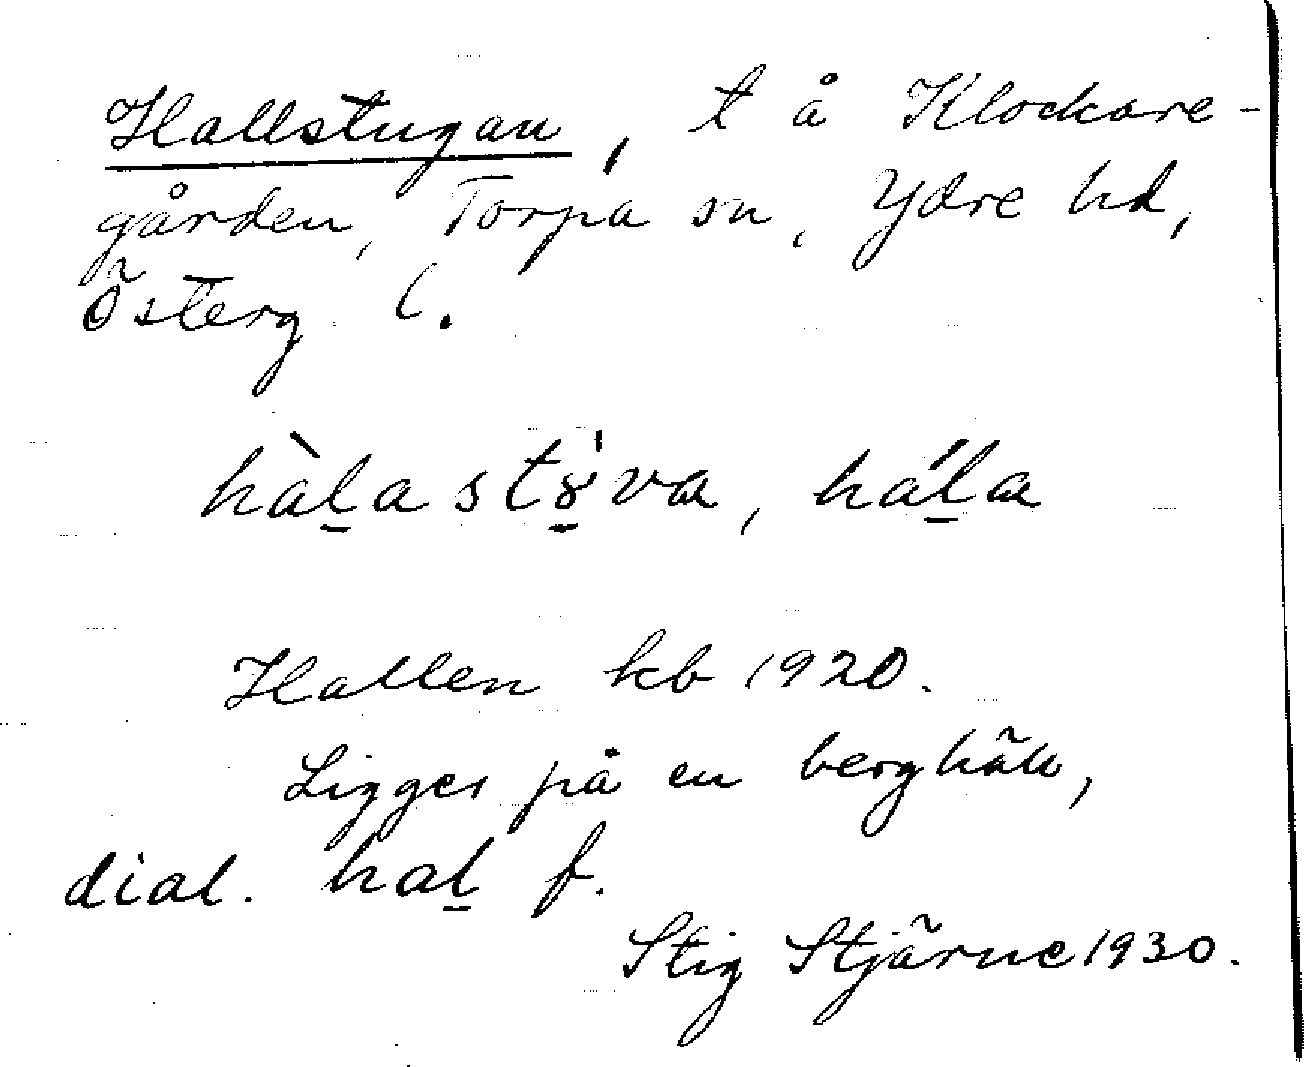 Hallstugan, t å Klockare-
gården, Torpa sn, Ydre hd,
Österg l.
hàl̠astȣ̠̀va, hál̠a
Hallen kb 1920.
Ligger på en berghäll,
dial. hal̠ f.
Stig Stjärne 1930.